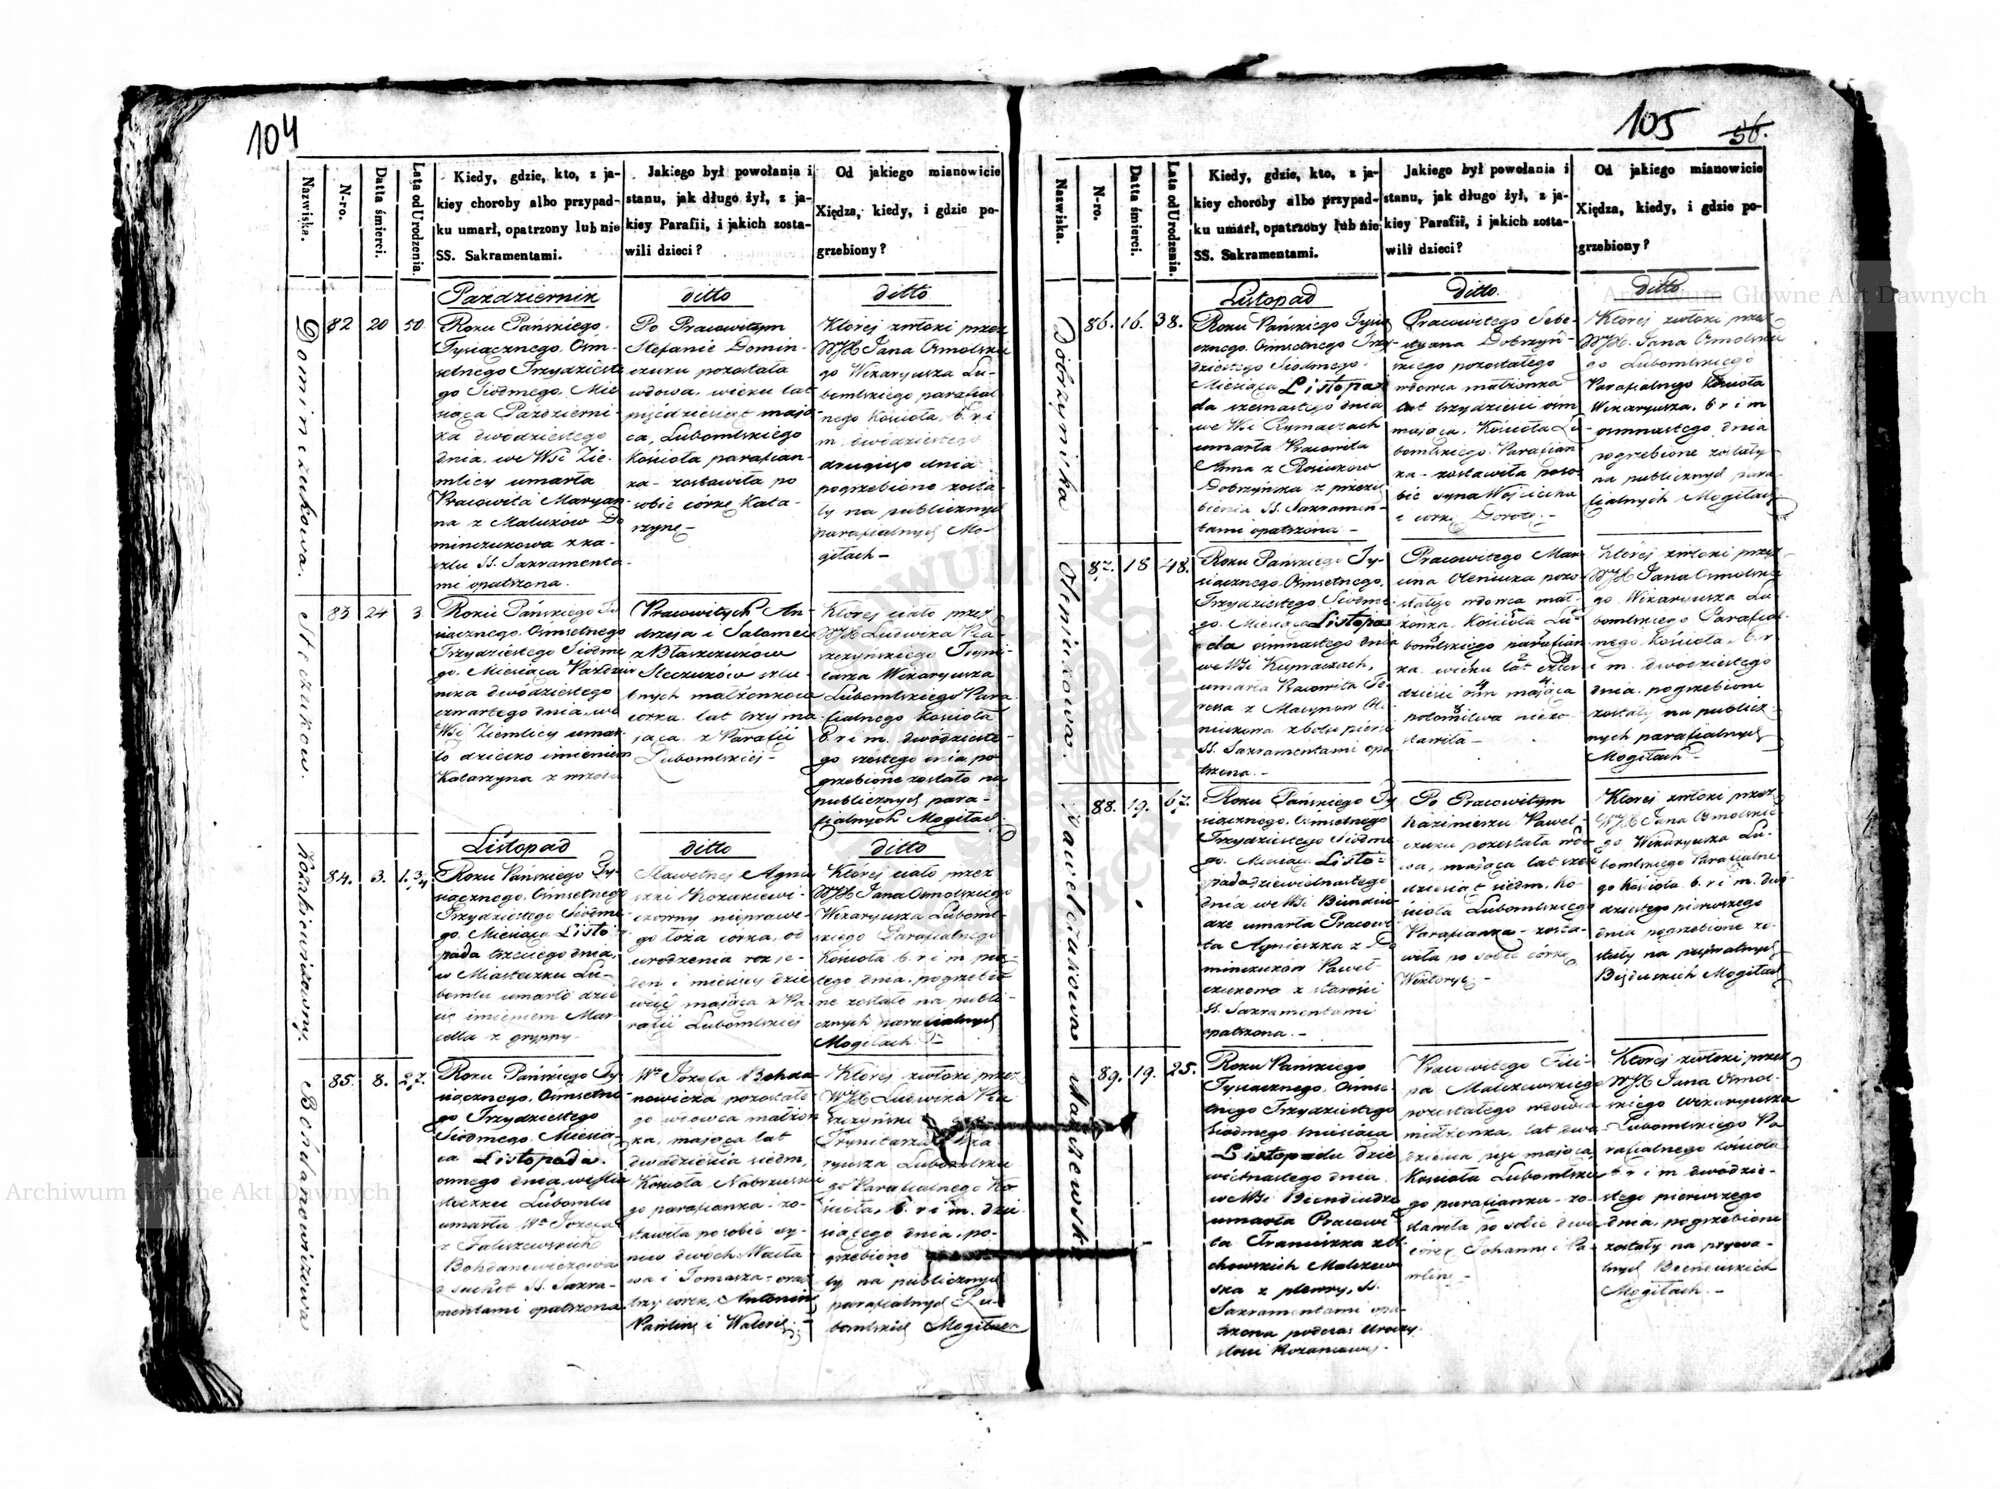 104
Nazwiska.
N-ro.
Datta śmierci.
Lata od Urodzenia.
Kiedy, gdzie, kto, z ja-
kiey choroby albo przypad-
ku umarł, opatrzony lub nie
SS. Sakramentami.
Jakiego był powołania i
stanu, jak długo żył, z ja-
kiey Parafii, i jakich zosta-
wili dzieci?
Od jakiego mianowicie
Xiędza, kiedy, i gdzie po-
grzebiony?
Październik
ditto
ditto
Dominczukowa.
82
20
50
Roku Pańskiego
Tysiącznego Ośm-
setnego Trzydzieste
go Siódmego, Mie-
siąca Październi
ka dwódziestego
dnia, we Wsi Zie-
mlicy umarła
Pracowita Maryan
na z Maluków Do
minczukowa z ka-
szlu SS. Sakramenta-
mi opatrzona.
Po Pracowitym
Stefanie Domin-
czuku pozostała
wdowa, wieku lat
pięćdziesiąt mają-
ca, Lubomlskiego
Kościoła parafian-
ka - zostawiła po
sobie córkę Kata-
rzynę -
Której zwłoki przez
WJX Jana Osmolskie
go Wikaryusza Lu-
bomlskiego parafial
nego Kościoła, b. r. i
m. dwódziestego
drugiego dnia
pogrzebione zosta-
ły na publicznych
parafialnych Mo-
giłach -
Steczuków.
83
24
3
Roku Pańskiego Ty
siącznego Ośmsetnego
Trzydziestego Siódme
go, Miesiąca Paździer
nika dwódziestego
czwartego dnia, we
Wsi Ziemlicy umar
ło dziecko imieniem
Katarzyna z wrzodu
Pracowitych An-
drzeja i Salomei
z Błaszczuków
Steczuków szlu
bnych małżonków
córka lat trzy ma
jąca, z Parafii
Lubomlskiej -
Której ciało przez
WJX Ludwika
Tryni-
tarza Wikaryusza
Lubomlskiego Para
fialnego Kościoła
b. r. i m. dwódzieste-
go szóstego dnia po
grzebione zostało na
publicznych para-
fialnych Mogiłach
Listopad
ditto
ditto
84.
3.
1. 3/4
Roku Pańskiego Ty-
siącznego Ośmsetnego
Trzydziestego Siódme
go, Miesiąca Listo-
pada trzeciego dnia,
w Miasteczku Lu-
bomlu umarło dzie
cię imieniem Mar-
cella z grypy -
Sławetnej Agnie
szki Kozakiewi-
czowny niepra​we-
go łoża córka, od
urodzenia rok je-
den i miesięcy dzie
więć mająca z Pa-
rafii Lubomlskiej
Której ciało przez
WJX Jana Osmolskiego
Wikaryusza Luboml-
skiego Parafialnego
Kościoła b. r. i m. pią-
tego dnia, pogrzebio-
ne zostało na publi-
cznych parafialnych
Mogiłach -
Bohdanowiczowa
85.
8.
27.
Roku Pańskiego Ty-
siącznego Ośmsetne-
go Trzydziestego
Siódmego, Miesią-
ca Listopada
osmego dnia, w Mia
steczku Lubomlu
umarła Wa Józefa
z Faliszewskich
Bohdanowiczowa
z suchot SS. Sakra-
mentami opatrzona
Wo Józefa Bohda
nowicza pozostałe-
go wdowca małżon
ka, mająca lat
dwadzieścia siedm,
Kościoła
go parafianka - zo-
stawiła po sobie sy-
nów dwóch Matta
wa i Tomasza - oraz
trzy córek, Antoninę
Paulinę i Walerię;
Której zwłoki przez
WJX Ludwika
Trynitarza Wika
ryusza Lubomlskie
go Parafialnego Ko-
ścioła, b. r. i m. dzie
siątego dnia, po-
grzebione
ły na publicznych
parafialnych Lu-
bomlskich Mogiłach
105
56.
Nazwiska.
N-ro.
Datta śmierci.
Lata od Urodzenia.
Kiedy, gdzie, kto, z ja-
kiey choroby albo przypad-
ku umarł, opatrzony lub nie
SS. Sakramentami.
Jakiego był powołania i
stanu, jak długo żył, z ja-
kiey Parafii, i jakich zosta-
wili dzieci?
Od jakiego mianowicie
Xiędza, kiedy, i gdzie po-
grzebiony?
Listopad
Ditto
Ditto
Dobrzynska
86.
16.
38.
Roku Pańskiego Tysią
cznego Ośmsetnego Trzy-
dziestego Siódmego,
Miesiąca Listopa
da szesnastego dnia
we Wsi Rymaczach
umarła Pracowita
Anna z
Dobrzyńska z przezię
bienia SS. Sakramen-
tami opatrzona -
Pracowitego Seba-
styana Dobrzyń-
skiego pozostałego
wdowca małżonka
lat trzydzieści ośm
mająca, Kościoła Lu-
bomlskiego Parafian
ka - zostawiła poso-
bie syna Wojciecha
i córkę Dorotę. -
Której zwłoki przez
WJX. Jana Osmolskie
go Lubomlskiego
Parafialnego Kościoła
Wikaryusza, b. r. i m
osmnastego dnia
pogrzebione zostały
na publicznych para-
fialnych Mogiłach
Oleniukowa.
87.
18
48.
Roku Pańskiego Ty-
siącznego Ośmsetnego,
Trzydziestego Siódme-
go, Miesiąca Listopa
da osmnastego dnia
we Wsi Rymaczach,
umarła Pracowita Te-
ressa z Macynów Ole
niukowa z bolu piersi
SS. Sakramentami opa
trzona. -
Pracowitego Mar
cina Oleniuka pozo-
stałego wdowca mał-
żonka, Kościoła Lu-
bomlskiego parafian
ka wieku lat czter
dzieści ośm mająca
potomstwa niezo-
stawiła -
Której zwłoki przez
WJX Jana Osmolskie
go Wikaryusza Lu-
bomlskiego Parafial-
nego Kościoła, b. r.
i m. dwódziestego
dnia, pogrzebione
zostały na publicz-
nych parafialnych
Mogiłach -
Pawelczukowa
88.
19.
67.
Roku Pańskiego Ty
siącznego Ośmsetnego
Trzydziestego Siódme
go, Miesiąca Listo-
pada dziewiętnastego
dnia we Wsi Binduu-
dze umarła Pracowi
ta Agnieszka z Do
minczuków Paweł-
czukowa z starości
SS. Sakramentami
opatrzona. -
Po Pracowitym
Kazimierzu Paweł-
czuku pozostała wdo
wa, mająca lat sześć
dziesiąt siedm, Ko-
ścioła Lubomlskiego
Parafianka - zosta-
wiła po sobie córkę
Wiktoryę. -
Której zwłoki przez
WJX Jana Osmolskie
go Wikaryusza Lu-
bomlskiego Parafialne
go Kościoła b. r. i m. dwó-
dziestego pierwszego
dnia pogrzebione zo-
stały na prywatnych
Mogiłach
Malczewska
89.
19.
25.
Roku Pańskiego
Tysiącznego Ośmse-
tnego Trzydziestego
Siódmego, Miesiąca
Listopada dzie
więtnastego dnia
we Wsi Binduudze
umarła Pracowi
ta Franciszka z
chowskich Malczew
ska z plewry, SS.
Sakramentami opa-
trzona podczas
Pracowitego Fili-
pa Malczewskiego
pozostałego wdowca
małżonka, lat dwa-
dzieścia pięć mająca,
Kościoła Lubomlskie
go parafianka - zo-
stawiła po sobie dwie
córek, Johannę i Pa-
ulinę -
Której zwłoki przez
WJX Jana Osmol-
skiego Wikaryusza
Lubomlskiego Pa-
rafialnego Kościoła
b. r. i m. dwódzie-
stego pierwszego
dnia, pogrzebione
zostały na prywa-
tnych
Mogiłach. -
Archiwum Główne Akt Dawnych
Archiwum Główne Akt Dawnych